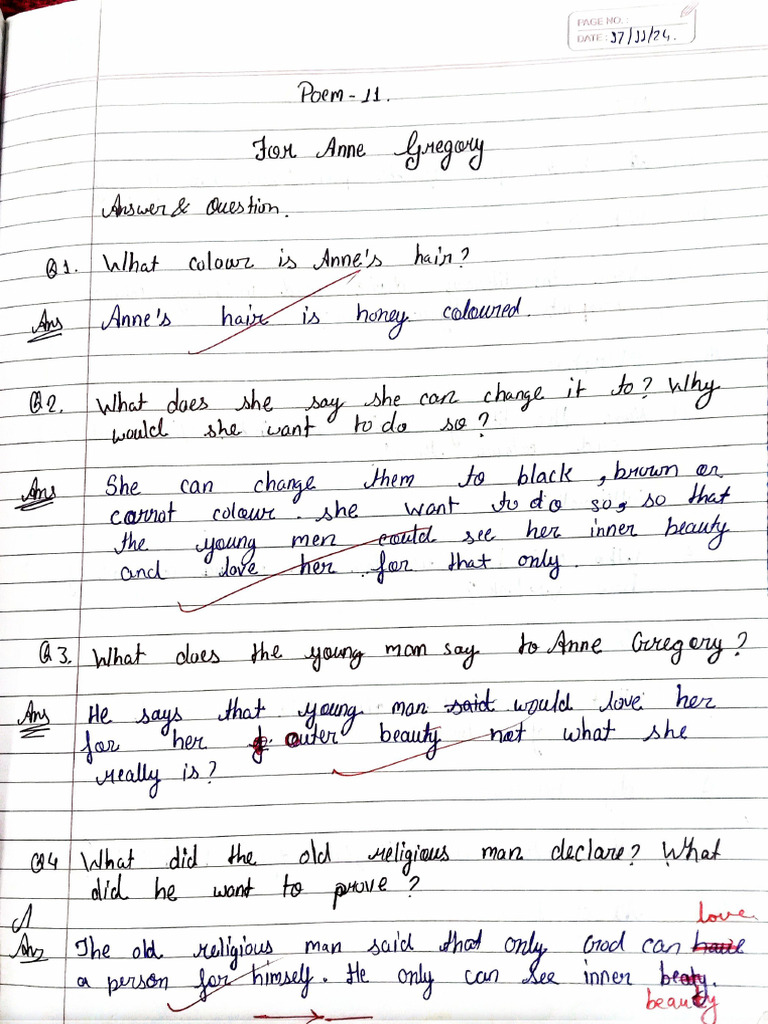 PAGE NO. :
DATE : 17/11/24.
Poem - 11.
For Anne Gregory
Answer & Question.
Q1. What colour is Anne's hair?
Ans Anne's hair is honey coloured.
Q2. What does she say she can change it to? Why
would she want to do so?
Ans She can change them to black, brown or
carrot colour. she want to do so, so that
the young men could see her inner beauty
and love her for that only.
Q3. What does the young man say to Anne Gregory?
Ans He says that young man said would love her
for her outer beauty not what she
really is?
Q4 What did the old religious man declare? What
did he want to prove?
love
Ans The old religious man said that only God can have
a person for himself. He only can see inner beaty.
beauty